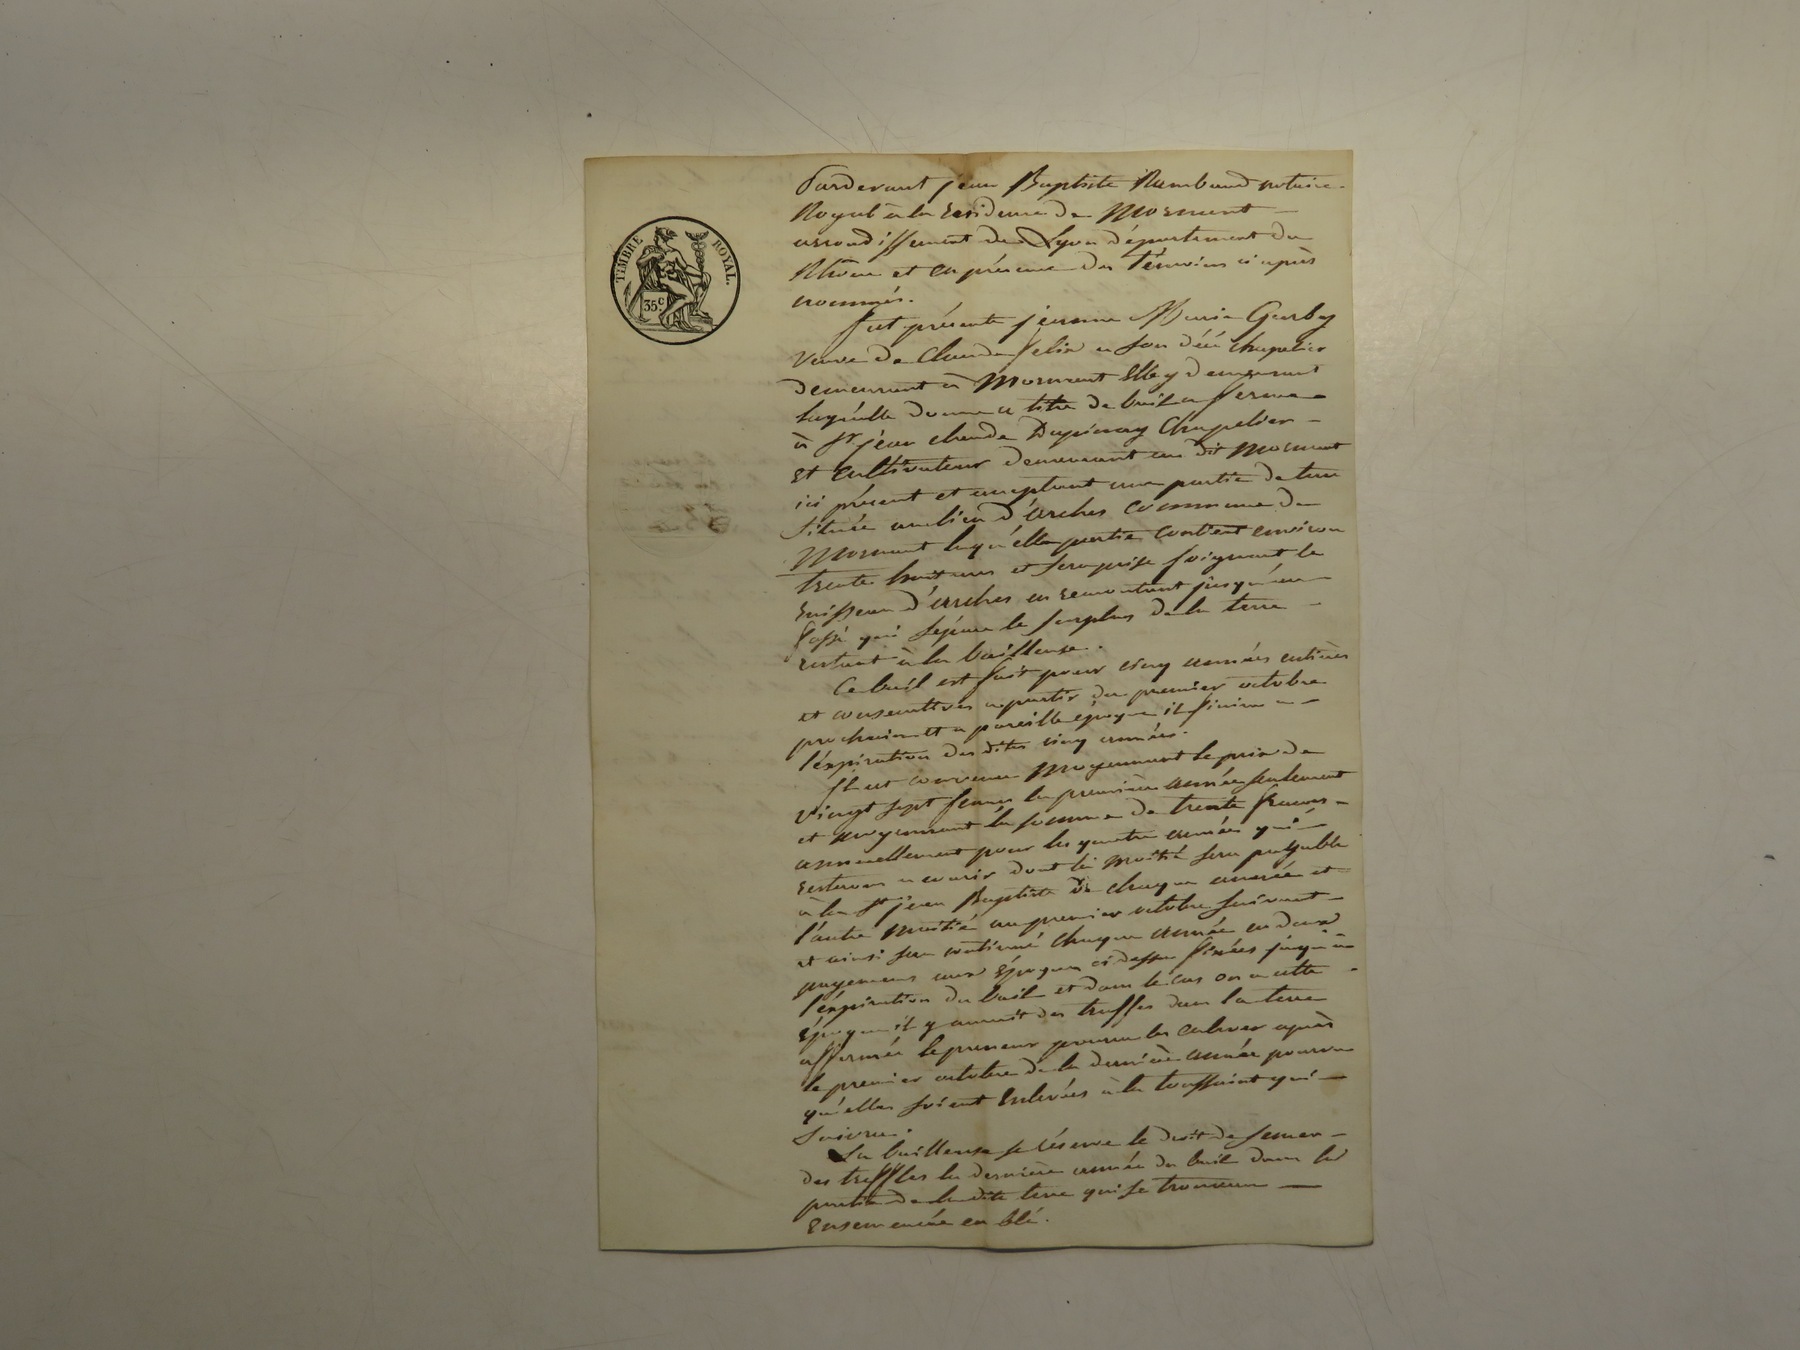 TIMBRE ROYAL.
35c.
Pardevant jean Baptiste Rambaud notaire
Royal à la Residence de Mornant
arrondissement de Lyon département du
Rhône et en présence des témoins ci après
nommés.
fut présente jeanne Marie
veuve de Claude felix a son décé chapelier
demeurant à Mornant Elle y demeurant
laquelle donne a titre de bail a ferme
à Sr jean claude Chapelier
et cultivateur demeurant au dit Mornant
ici présent et acceptant une partie de terre
Située au lieu d'arches commune de
Mornant laquélle partie contient environ
trente huit ares et sera prise joignant le
Ruisseau d'arches en remontant jusqu'au
fossé qui sépare le surplus de la terre
restant à la bailleuse.
Ce bail est fait pour cinq années entières
et consecutives a partir du premier octobre
prochain et a pareille époque il finira a
l'éxpiration des dites cinq années.
Il est convenu Moyennant le prix de
vingt sept francs la première année seulement
et moyennant la somme de trente francs
annuellement pour les quatre années qui
resteron a courir dont la moitié sera payable
à la St jean Baptiste de chaque année et
l'autre moitié au premier octobre suivant
et ainsi sera continué chaque année en deux
payemens aux époques ci dessus fixées jusqu'à
l'éxpiration du bail et dans le cas on a cette
époque il y auroit des truffes dans la terre
affermée le preneur pourra les enlever après
le premier octobre de la dernière année pourvu
qu'elles soient Enlevées à la toussaint qui
Suivra.
La bailleuse se réserve le droit de semer
des treffles la dernière année du bail dans la
partie de la dite terre qui se trouvera
Ensemencée en blé.